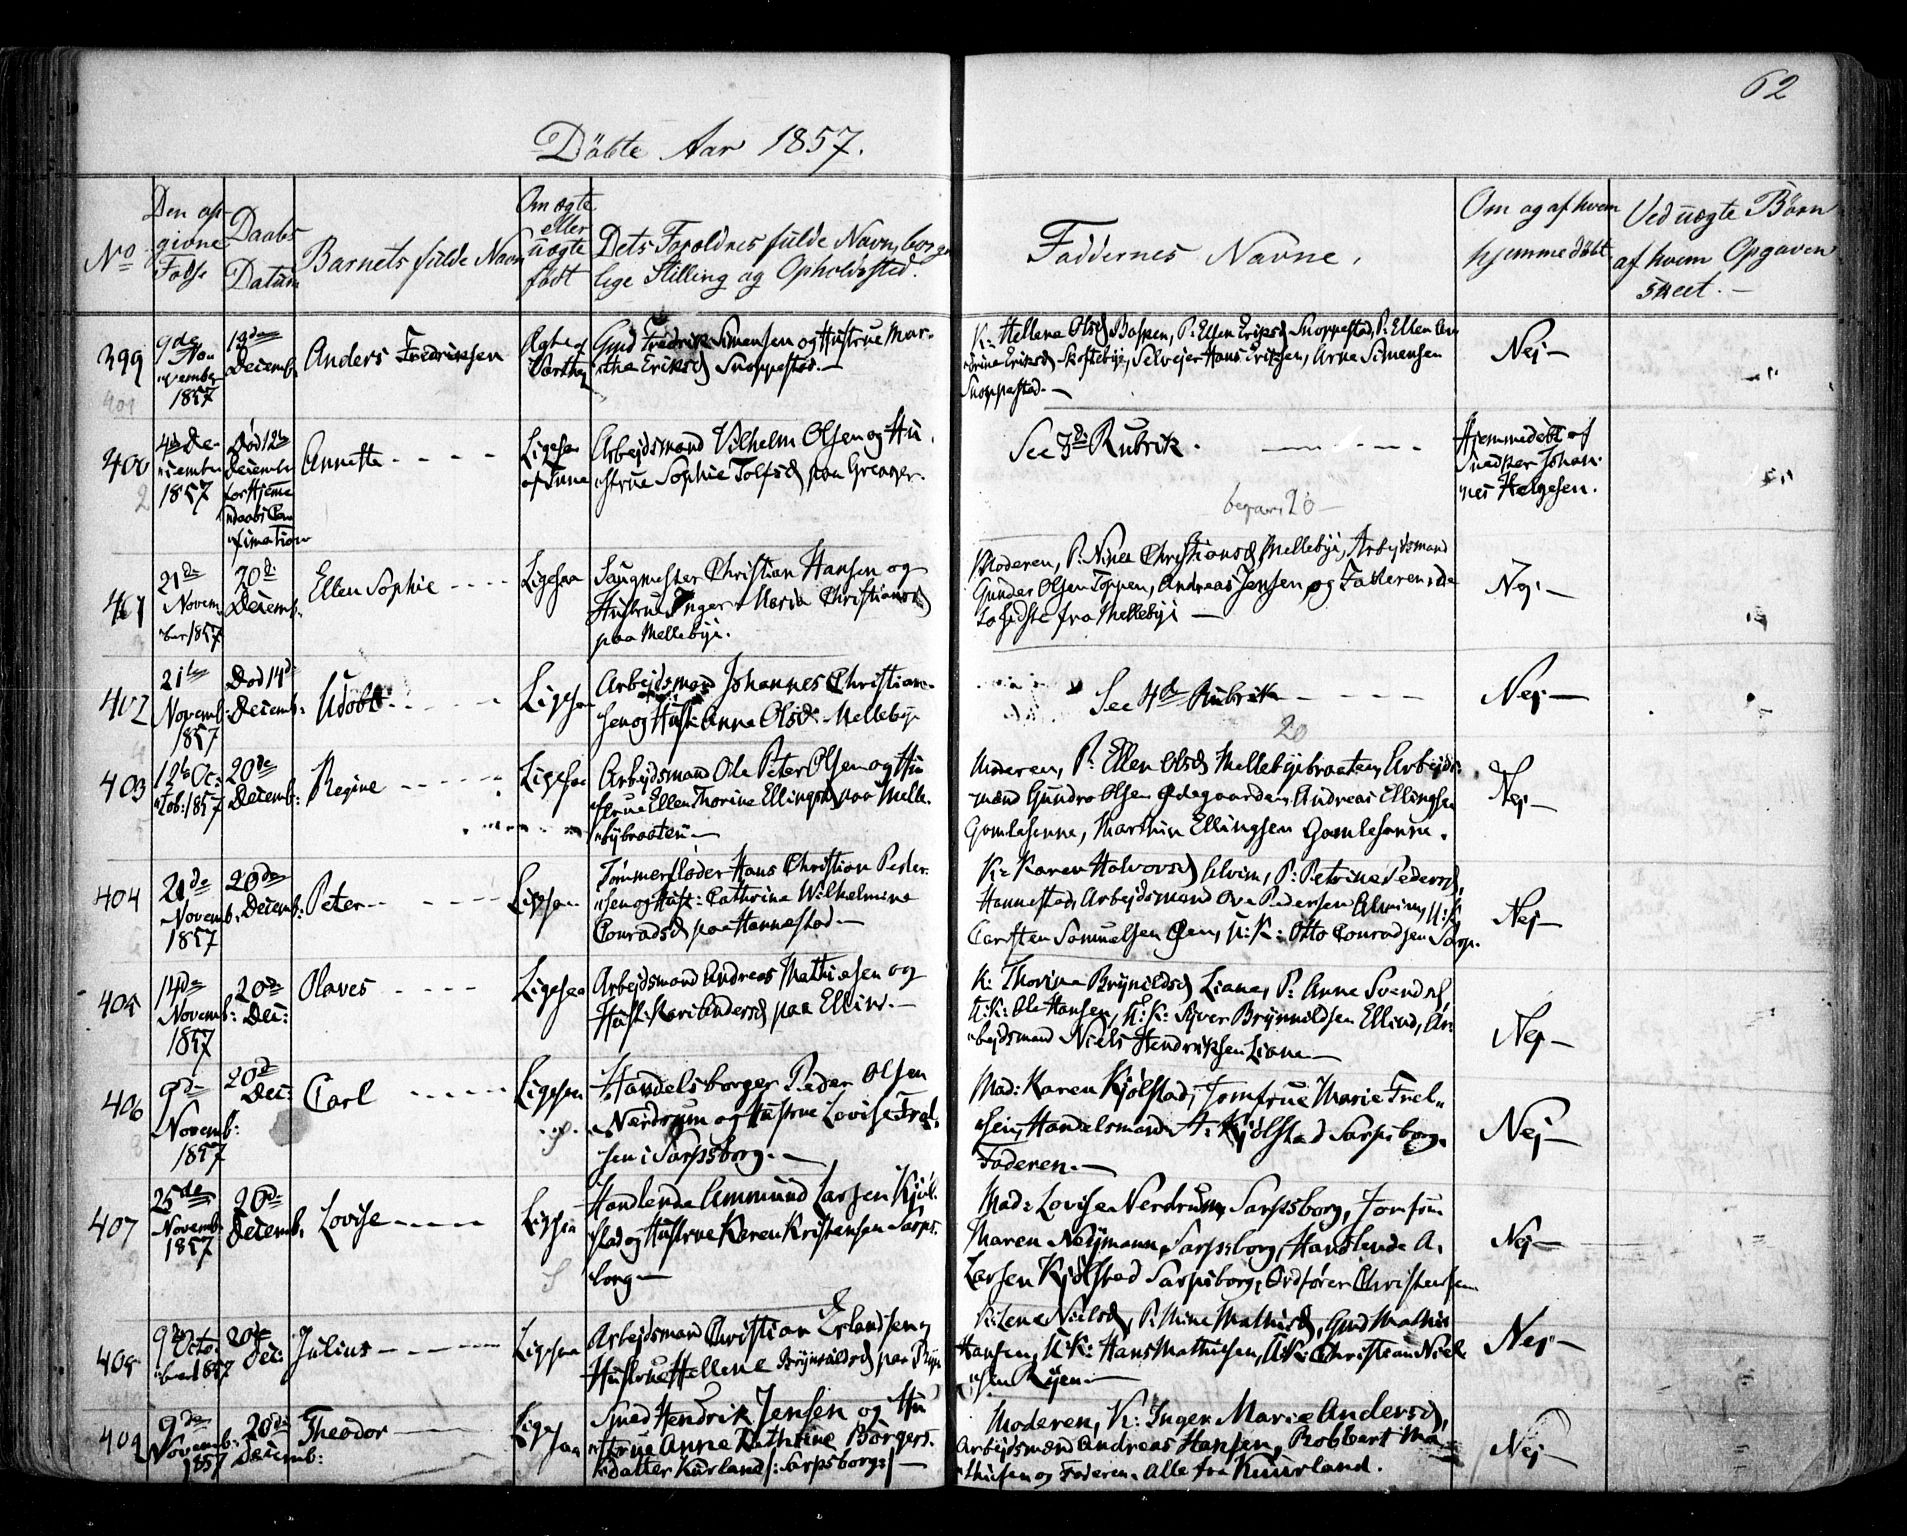 62
Döbte Aar 1857.
No
Den op-
givne
Datum
Daabs
Barnets fulde Navn
Om ægte
eller
uægte
født
Dets Forældres fulde Navn, borger
lige Stilling og Opholdssted.
Faddernes Navne.
Om og af hvem
hjemmedöbt
Ved uægte Börn
af hvem Opgaven
skeet.
399
9de No
vember
1857
Decemb
Anders Fredriksen
Fredrik Simensen og Hustrue Mar-
the Eriksd
K: Hellene Olsd P: Ellen Eriksd
Eriksd Selveier Hans Eriksen, Arne Simensen
Nej
400
1857
Död 12te
Decembr
for Hjeme
daabs Con
firmation
Annette
Ligesaa
af Tune
Arbejdsmand Vilhelm Olsen og Hu
strue Sophie Tolfsd paa Greaager.
See 3de Rubrik.
Hjemmedöbt af
Snedker Johan
nes Helgesen.
21de
Novem
ber 1857
20de
Decemb.
Ellen Sophie
Ligesaa
Saugmester Christian Hansen og
Hustru Inger Maria Christiansd
paa Mellebye.
Moderen, P. Nina Christiansd Mellebye, Arbejdsmand
Gunder Olsen Toppen, Andreas Jensen og Faderen, de
to sidste fra Mellebye
Nej
402
21de
Novemb.
1857
Död 14de
Decemb:
Udöbt
Ligesaa
Arbejdsmand Johannes Christian-
sen og Hust: Anne Olsd Mellebye
See 4de Rubrik
Nej
20
403
12te Oc:
tob: 1857
20de
Decemb:
Regine
Ligesaa
Arbejdsmand Ole Peter Olsen og Hu
strue Ellen Thorine Ellingsd paa Melle-
bybraaten
Moderen, P: Ellen Olsd Mellebyebraaten, Arbejds-
mand Olsen Ødegaarden, Andreas Ellingsen
Ellingsen
Nej
404
Novemb.
1857
20de
Decemb:
Peter
Ligesaa
Tømmerfløder Hans Christian Peder
sen og Hust: Cathrine Wilhelmine
Conradsd paa Hannestad
K: Karen Halvorsd Alvim, P: Petrine Pedersd
Hannestad, Arbejdsmand Ove Pedersen Alvim, U:K:
Carsten Samuelsen U: K: Otto Conradsen
Nej
14de
Novemb:
1857
20de
Dec:
Olaves
Ligesaa
Arbejdsmand Andreas Mathisen og
Hust: Kari Andersd paa
K: Thorina Brynildsd Liane, P: Anne Svendsd
U:K: Ole Hansen, U:K: Syver Brynnildsen Ar
bejdsmand Niels Hendriksen Liane
Nej
406
9de
Novemb:
1857
20de
Dec:
Carl
Ligesaa
Handelsborger Peder Olsen
Nærdrum og Hustrue Lovise Frel-
sen i Sarpsborg.
Mad: Karen Kjölstad, Jomfrue Marie Frel-
sen, Handelsmand A. Kjölstad Sarpsborg.
Faderen.
Nej
407
25de
Novemb.
1857
20de
Decemb.
Lovise
Ligesaa
Handlende Ammund Larsen Kjöl-
stad og Hustrue Karen Kristensen Sarps-
borg
Mad: Lovise Nerdrum, Sarpsborg, Jomfrue
Maren Neumann, Sarpsborg, Handlende A.
Larsen Kjölstad Sarpsborg, Ordfører Christensen
Nej
408
9de
Octo-
ber 1857
20de
Dec:
Julius
Ligesaa
Arbejdsmand Christian Erlandsen og
Hustrue Hellene Brynnildsd paa Ryen
P: Lene Nielsd, P: Mine Mathisd, Gmd Mathis
Hansen, UK: Hans Mathisen, UK: Christian Niel-
sen Ryen.
Nej
409
9de
Novemb:
1857
20de
Decemb:
Theodor
Ligesaa
Smed Hendrik Jensen og Hu
strue Anne Kathrine Börgers-
datter Kurland /: Sarpsborg :/
Moderen, K: Inger Marie Andersd,
Arbejdsmand Andreas Hansen, Robbert Ma-
thisen og Faderen. Alle fra Kuurland.
Nej